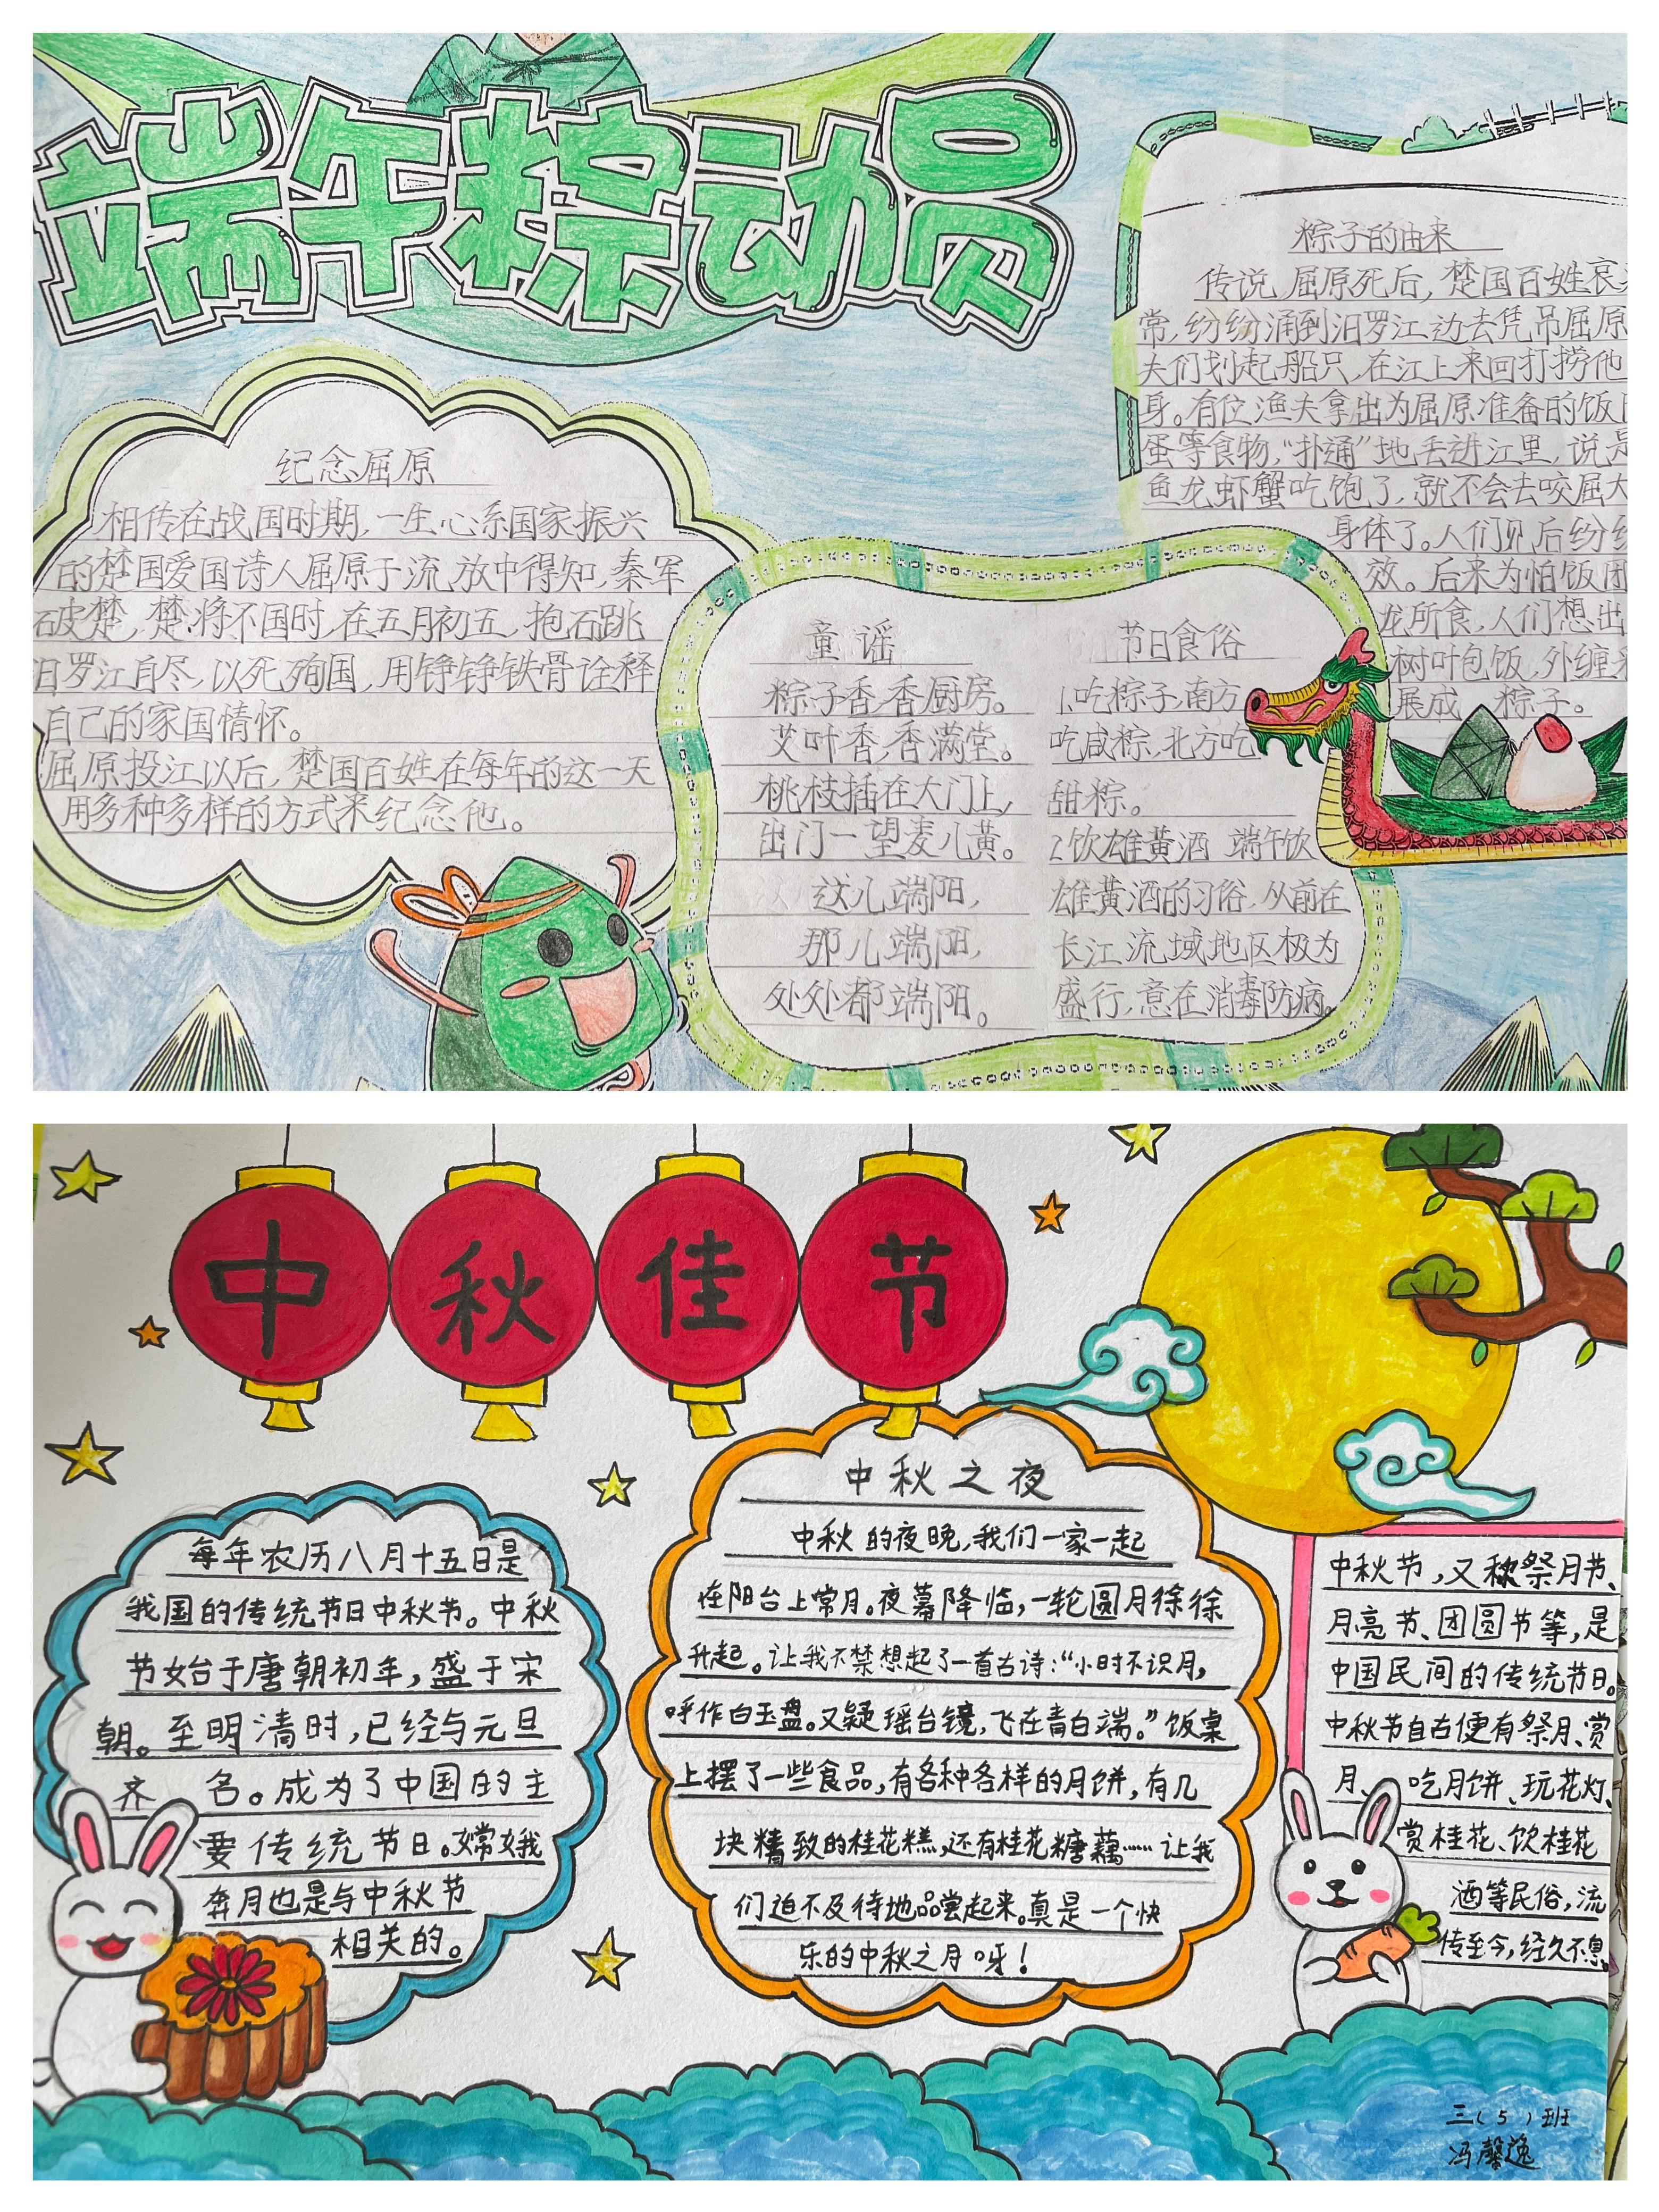 端午粽动员
纪念屈原
相传在战国时期,一生心系国家振兴
的楚国爱国诗人屈原于流放中得知,秦军
破楚,楚将不国时,在五月初五,抱石跳
汨罗江自尽,以死殉国,用铮铮铁骨诠释
自己的家国情怀。
屈原投江以后,楚国百姓在每年的这一天
用多种多样的方式来纪念他。
童谣
粽子香,香厨房。
艾叶香,香满堂。
桃枝插在大门上,
出门一望麦儿黄。
这儿端阳,
那儿端阳,
处处都端阳。
节日食俗
1.吃粽子,南方
吃咸粽,北方吃
甜粽。
2饮雄黄酒 端午饮
雄黄酒的习俗,从前在
长江流域地区极为
盛行,意在消毒防病。
粽子的由来
传说,屈原死后,楚国百姓哀
常,纷纷涌到汨罗江边去凭吊屈原
夫们划起船只,在江上来回打捞他
身。有位渔夫拿出为屈原准备的饭
蛋等食物,“扑通”地丢进江里,说是
鱼龙虾蟹吃饱了,就不会去咬屈大
身体了。人们见后纷纷
效。后来为怕饭团
龙所食,人们想出
树叶包饭,外缠
展成 粽子。
中秋佳节
每年农历八月十五日是
我国的传统节日中秋节。中秋
节始于唐朝初年,盛于宋
朝。至明清时,已经与元旦
齐 名。成为了中国的主
要传统节日。嫦娥
奔月也是与中秋节
相关的。
中秋之夜
中秋的夜晚,我们一家一起
在阳台上常月。夜幕降临,一轮圆月徐徐
升起。让我不禁想起了一首古诗:“小时不识月,
呼作白玉盘。又疑瑶台镜,飞在青白端。”饭桌
上摆了一些食品,有各种各样的月饼,有几
块精致的桂花糕,还有桂花糖藕……让我
们迫不及待地品尝起来。真是一个快
乐的中秋之月呀!
中秋节,又称祭月节、
月亮节、团圆节等,是
中国民间的传统节日。
中秋节自古便有祭月、赏
月、 吃月饼、玩花灯、
赏桂花、饮桂花
酒等民俗,流
传至今,经久不息。
三(5)班
冯馨逸